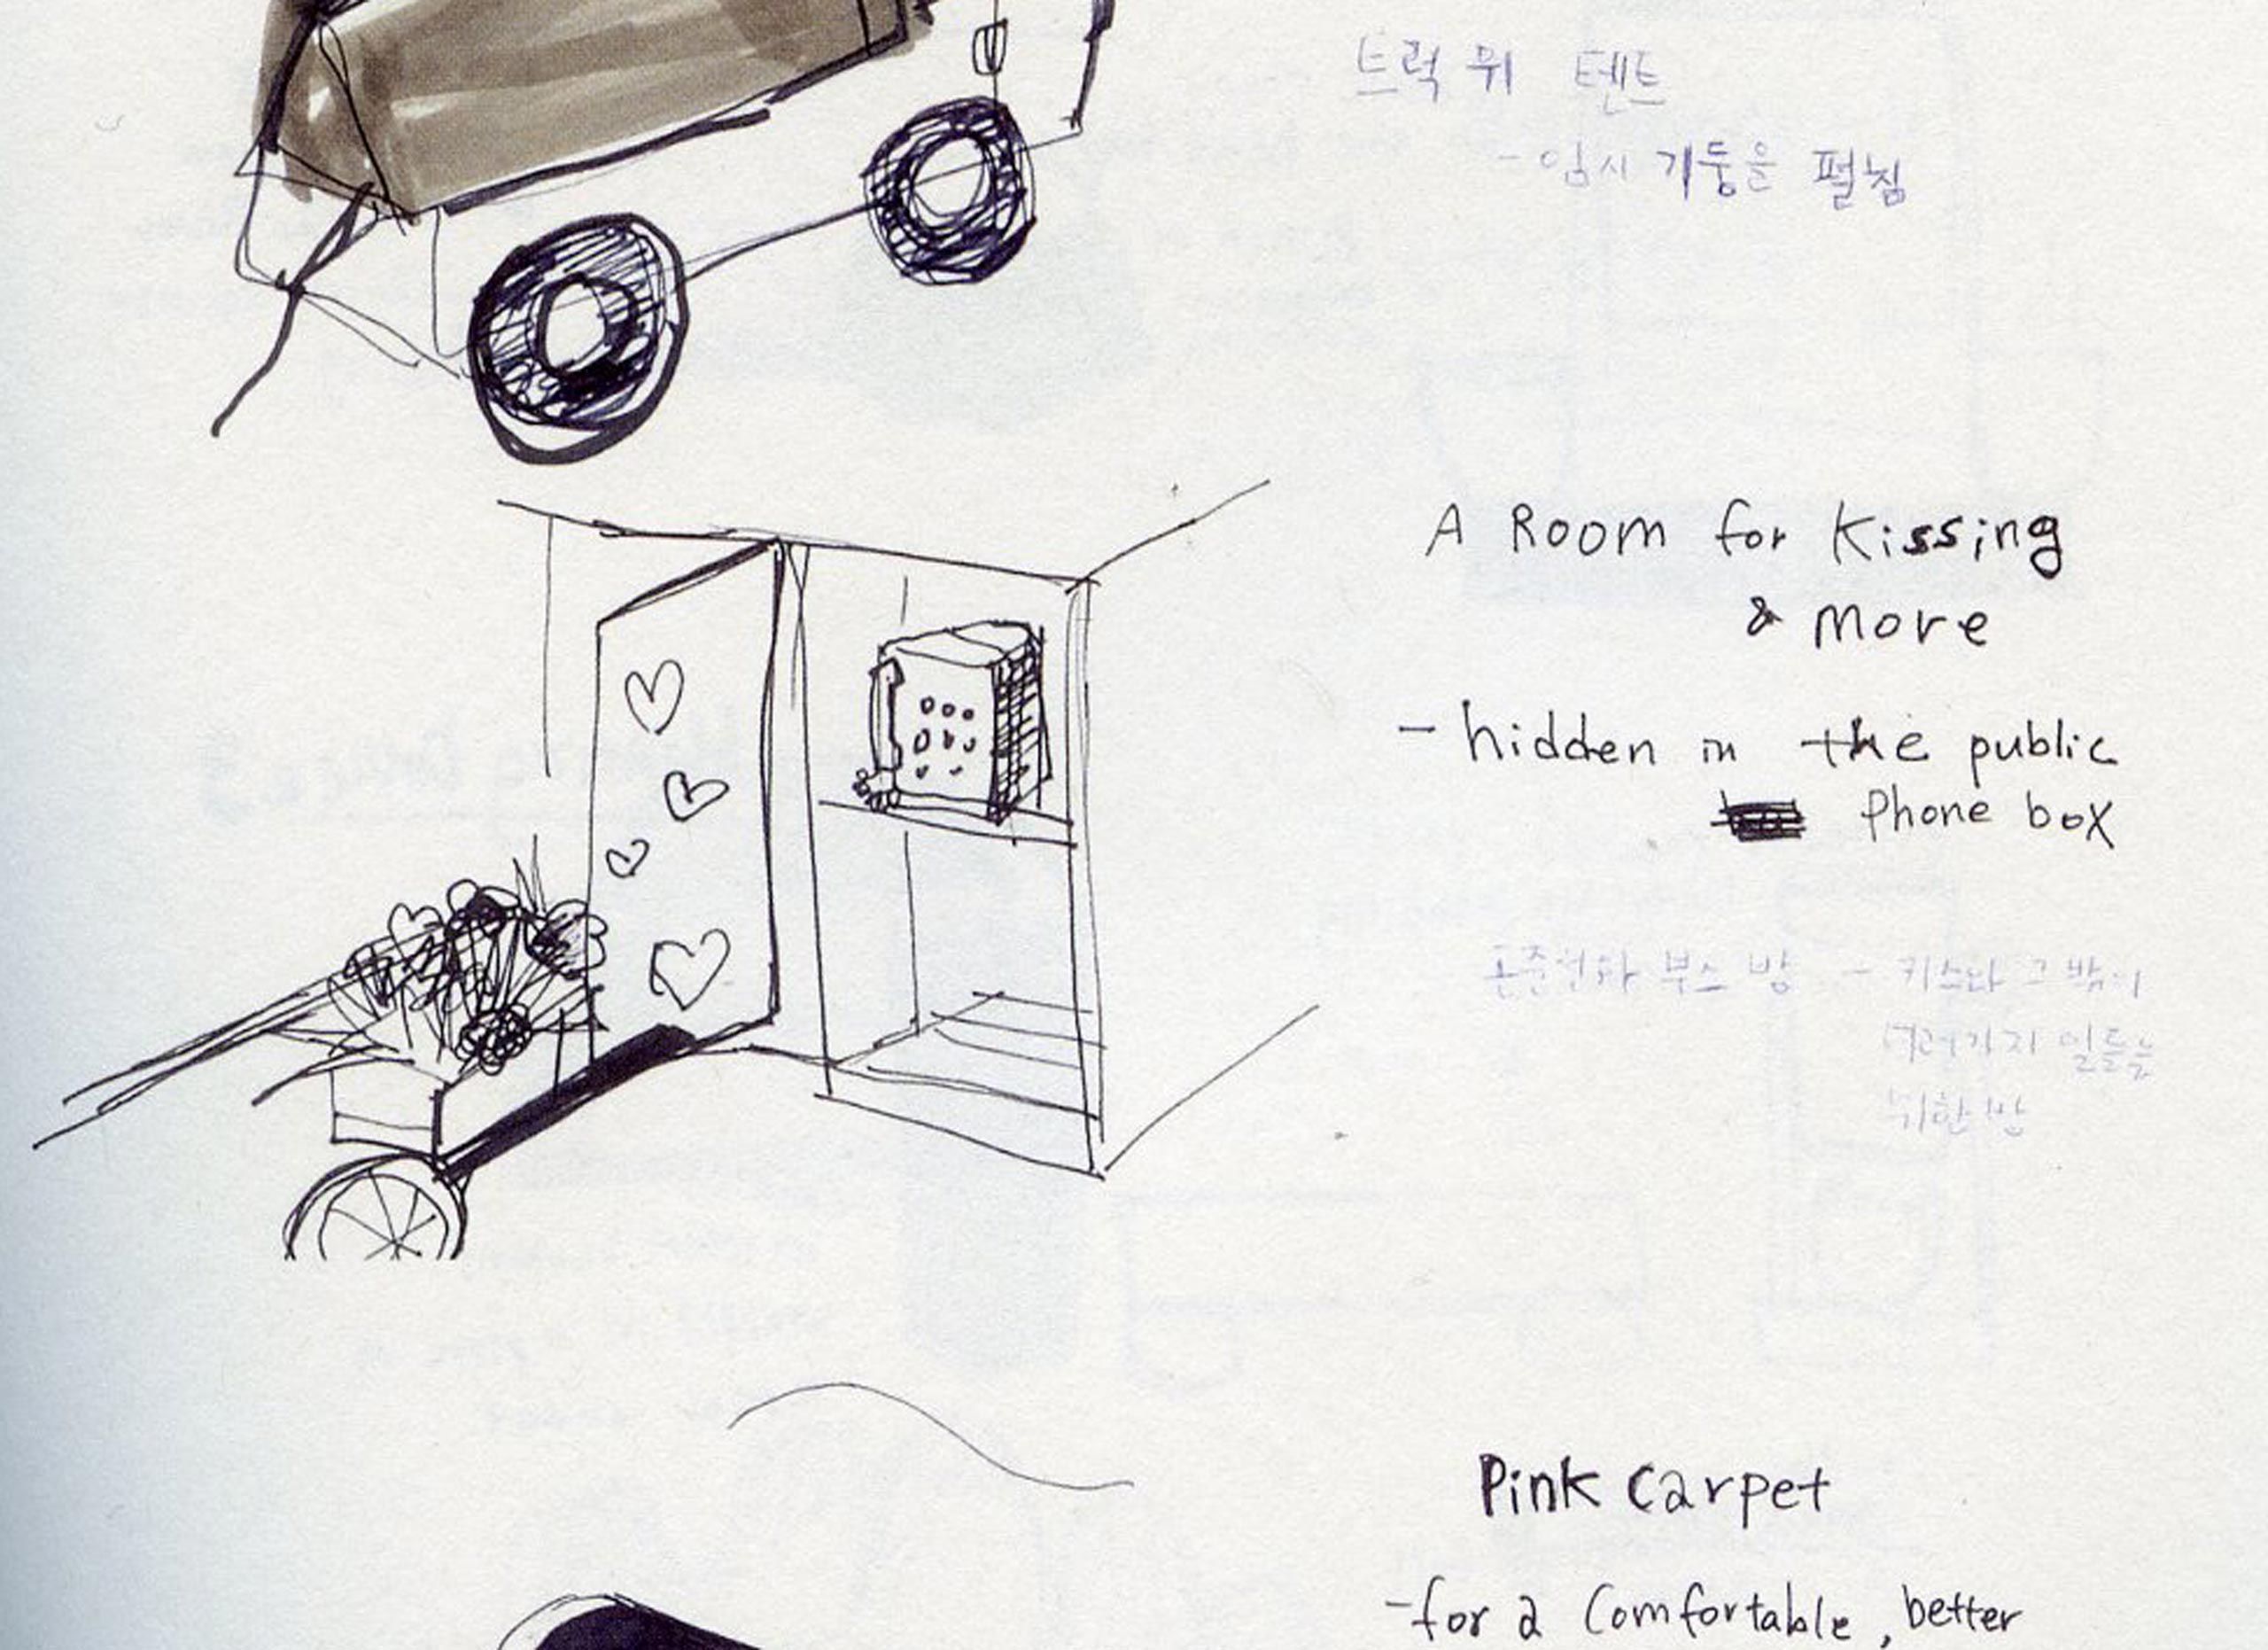 트럭 위 텐트
- 임시 기둥을 펼침
A Room for Kissing
& more
- hidden in the public
phone box
공중전화 부스 방 - 키스와 그 밖의
여러가지 일들을
위한 방
Pink Carpet
- for a comfortable, better